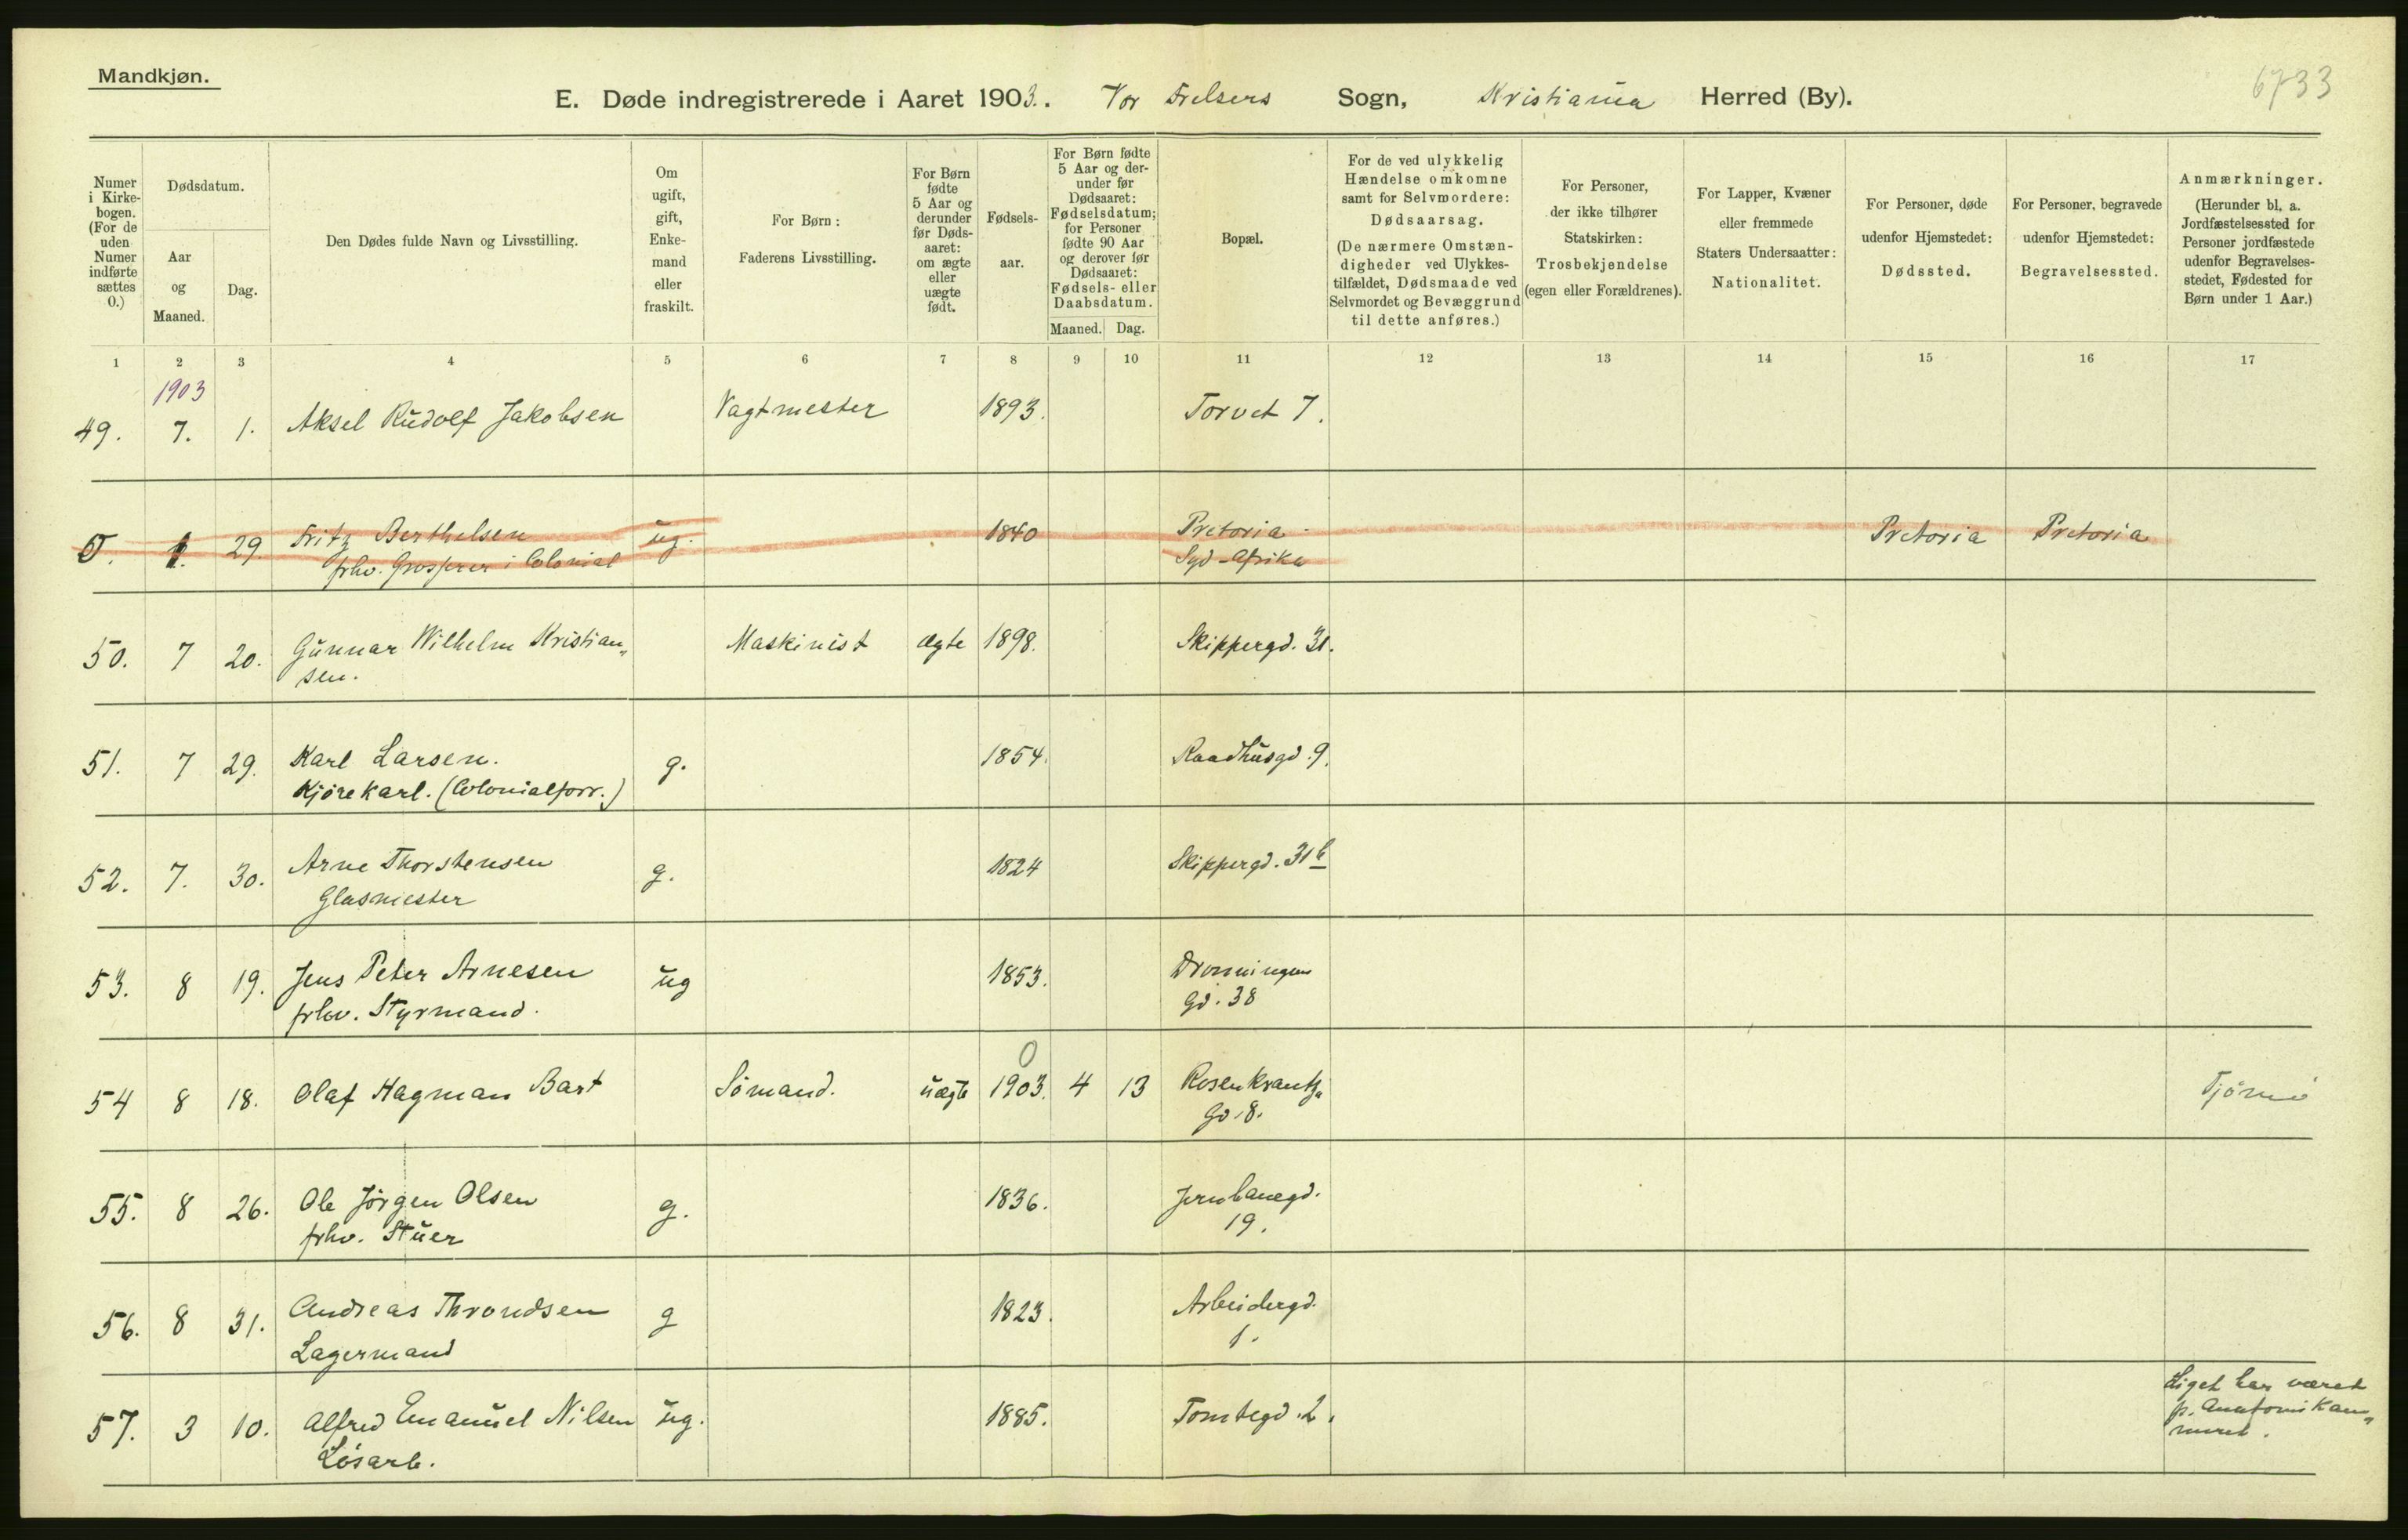 Mandkjøn.
6733
E. Døde indregistrerede i Aaret 1903. Vor Frelsers Sogn, Kristiania Herred (By).
Numer i Kirkebogen. (For de uden Numer indførte sættes 0.)
Dødsdatum.
Aar og Maaned.
Dag.
Den Dødes fulde Navn og Livsstilling.
Om ugift, gift, Enkemand eller fraskilt.
For Børn: Faderens Livsstilling.
For Børn fødte 5 Aar og derunder før Dødsaaret: om ægte eller uægte født.
Fødselsaar.
For Børn fødte 5 Aar og derunder før Dødsaaret: Fødselsdatum; for Personer fødte 90 Aar og derover før Dødsaaret: Fødsels- eller Daabsdatum.
Maaned. Dag.
Bopæl.
For de ved ulykkelig Hændelse omkomne samt for Selvmordere: Dødsaarsag. (De nærmere Omstændigheder ved Ulykkestilfældet, Dødsmaade ved Selvmordet og Bevæggrund til dette anføres.)
For Personer, der ikke tilhører Statskirken: Trosbekjendelse (egen eller Forældrenes).
For Lapper, Kvæner eller fremmede Staters Undersaatter: Nationalitet.
For Personer, døde udenfor Hjemstedet: Dødssted.
For Personer, begravede udenfor Hjemstedet: Begravelsessted.
Anmærkninger. (Herunder bl. a. Jordfæstelsessted for Personer jordfæstede udenfor Begravelsesstedet, Fødested for Børn under 1 Aar.)
1 2 3 4 5 6 7 8 9 10 11 12 13 14 15 16 17
1903
49. 7. 1. Aksel Rudolf Jakobsen Vagtmester 1893. Torvet 7.
0. 1. 29. Fritz Berthelsen ug. 1840 Pretoria Pretoria Pretoria
frhv. Grosserer i Colonial Syd-Afrika
50. 7 20. Gunnar Wilhelm Kristian„ Maskinist ægte 1898. Skippergd. 31.
sen.
51. 7 29. Karl Larsen. g. 1854. Raadhusgd. 9.
Kjørekarl. (Colonialforr.)
52. 7. 30. Arne Thorstensen g. 1824 Skippergd. 31 b
Glasmester
53. 8 19. Jens Peter Arnesen ug 1853. Dronningens
frhv. Styrmand. Gd. 38
0
54 8 18. Olaf Hagman Bast Sømand. uægte 1903. 4 13 Rosenkrantz„ Tjømø
Gd. 8.
55. 8 26. Ole Jørgen Olsen g. 1836. Jernbanegd.
frhv. Stuer 19.
56. 8 31. Andreas Throndsen g 1823. Arbeidergd.
Lagermand 1.
57. 3 10. Alfred Emanuel Nilsen ug. 1885. Tomtegd. 2. Liget har været
Løsarb. p. Anatomikam„
meret.